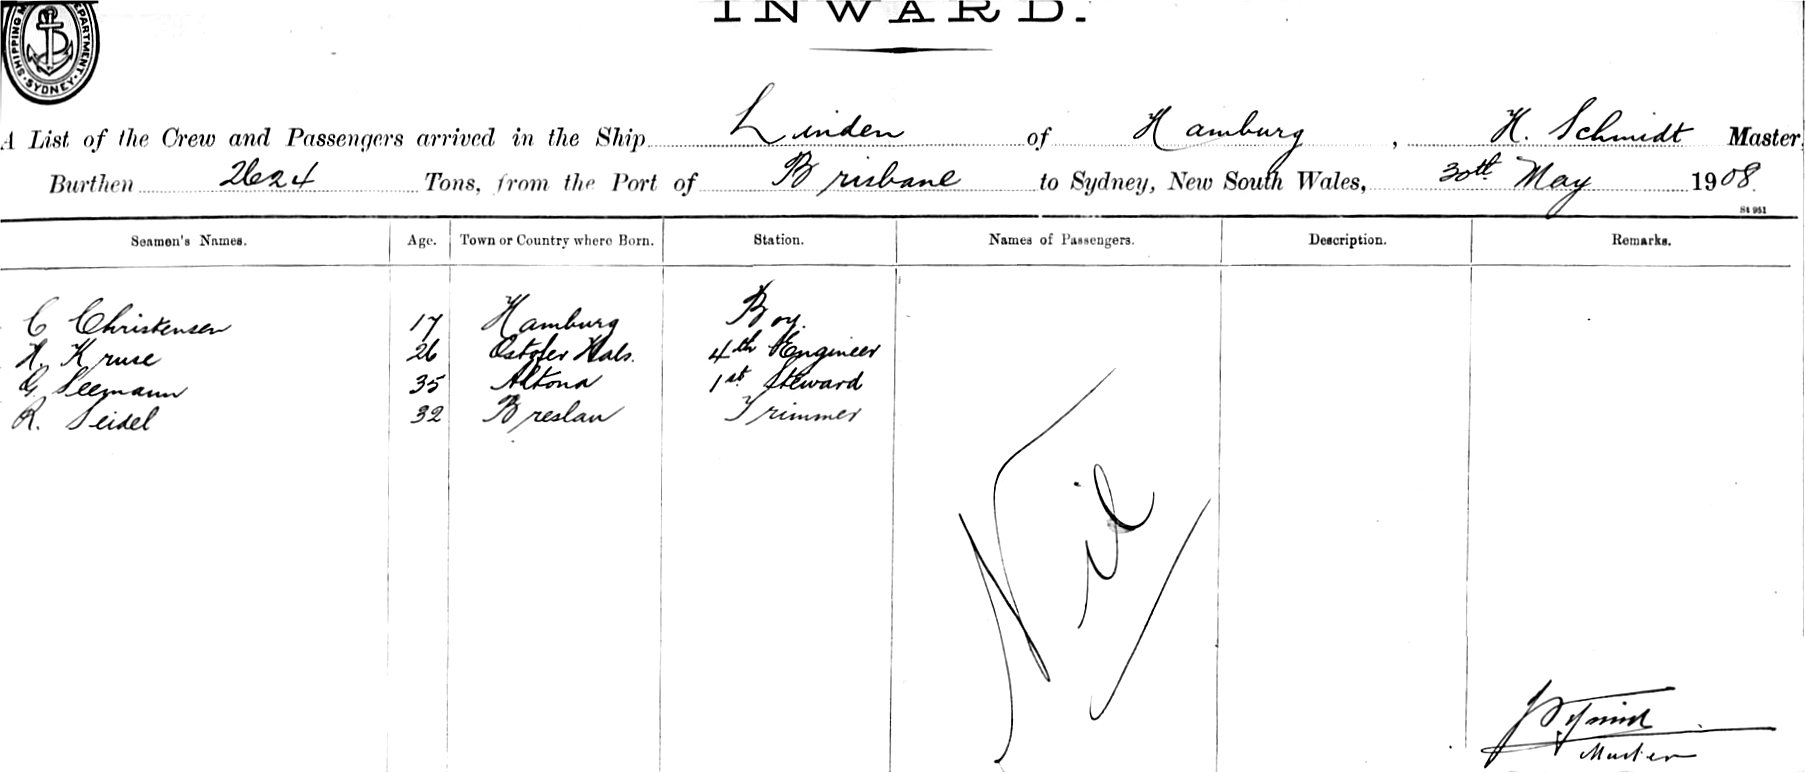 INWARD.
SHIPPING DEPARTMENT. SYDNEY
A List of the Crew and Passengers arrived in the Ship Linden of Hamburg, H. Schmidt Master,
Burthen 2624 Tons, from the Port of Brisbane to Sydney, New South Wales, 30th May 1908.
St 951
Seamen's Names. Age. Town or Country where Born. Station. Names of Passengers. Description. Remarks.
C Christensen 17 Hamburg Boy.
H. Kruse 26 4th Engineer
G. Seemann 35 Altona 1st. Steward
R. Seidel 32 Breslau Trimmer
Nil
Master